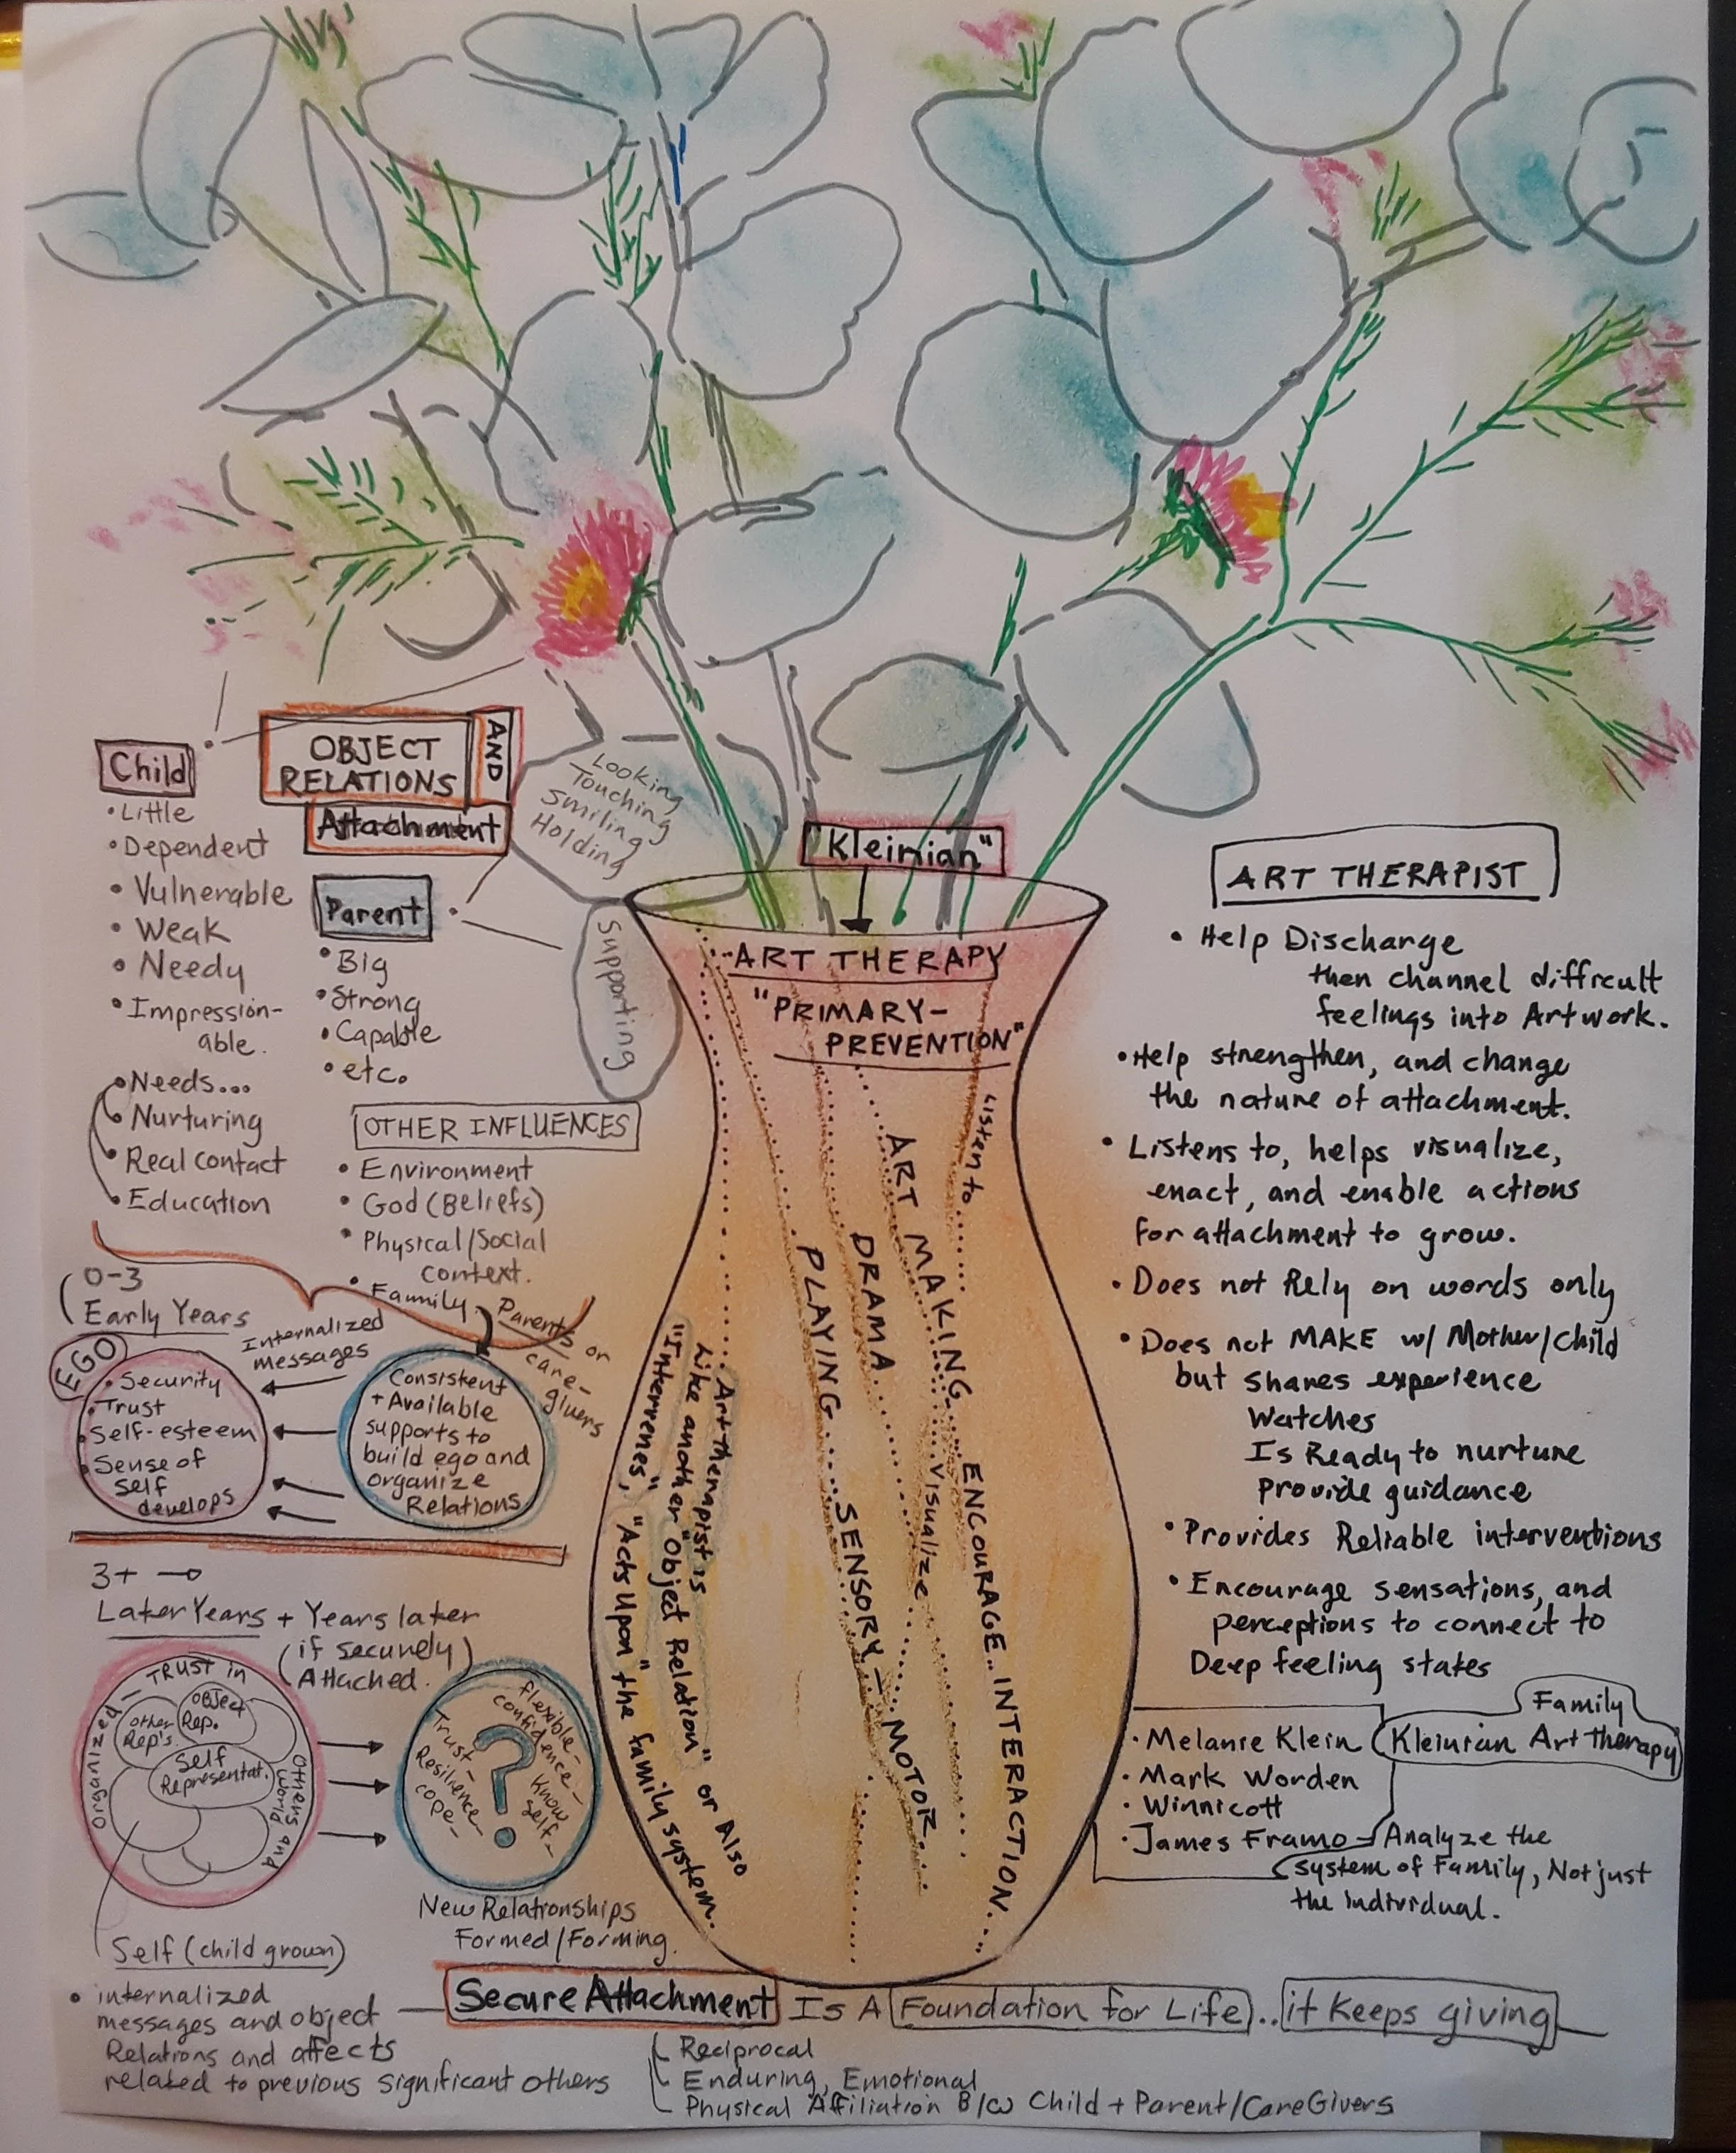 Child
• Little
• Dependent
• Vulnerable
• Weak
• Needy
• Impression-
able.
• Needs...
• Nurturing
• Real contact
• Education
OBJECT
RELATIONS
AND
Attachment
Looking
Touching
Smiling
Holding
Supporting
Parent
• Big
• Strong
• Capable
• etc.
OTHER INFLUENCES
• Environment
• God (Beliefs)
• Physical/Social
context.
• Family.
Parents or
care-
givers
0-3
Early Years
Internalized
messages
EGO
• Security
• Trust
• Self-esteem
• Sense of
self
develops
Consistent
+ Available
supports to
build ego and
organize
Relations
3+ →
Later Years + Years later
(if securely)
Attached.
Organized – TRUST in
Others and
World
Object
Rep.
other
Rep's
Self
Representat.
flexible-
confidence-
Know
self-
Trust-
Resilience-
cope-
?
New Relationships
Formed/Forming.
Self (child grown)
• internalized
messages and object
Relations and affects
related to previous significant others
"Kleinian"
ART THERAPY
"PRIMARY-
PREVENTION"
Art therapist is
Like another "Object Relation" or Also
"Intervenes", "Acts Upon" the family system.
PLAYING....SENSORY-MOTOR...
DRAMA
ART MAKING...visualize
Listen to......
ENCOURAGE..INTERACTION...
ART THERAPIST
• Help Discharge
then channel difficult
feelings into Artwork.
• Help strengthen, and change
the nature of attachment.
• Listens to, helps visualize,
enact, and enable actions
for attachment to grow.
• Does not Rely on words only
• Does not MAKE w/ Mother/Child
but shares experience
Watches
Is Ready to nurture
provide guidance
• Provides Reliable interventions
• Encourage sensations, and
perceptions to connect to
Deep feeling states
Family
Kleinian Art Therapy
• Melanie Klein
• Mark Worden
• Winnicott
• James Framo
Analyze the
system of Family, Not just
the individual.
Secure Attachment Is A Foundation for Life.. it Keeps giving
Reciprocal
Enduring, Emotional
Physical Affiliation B/w Child + Parent/CareGivers